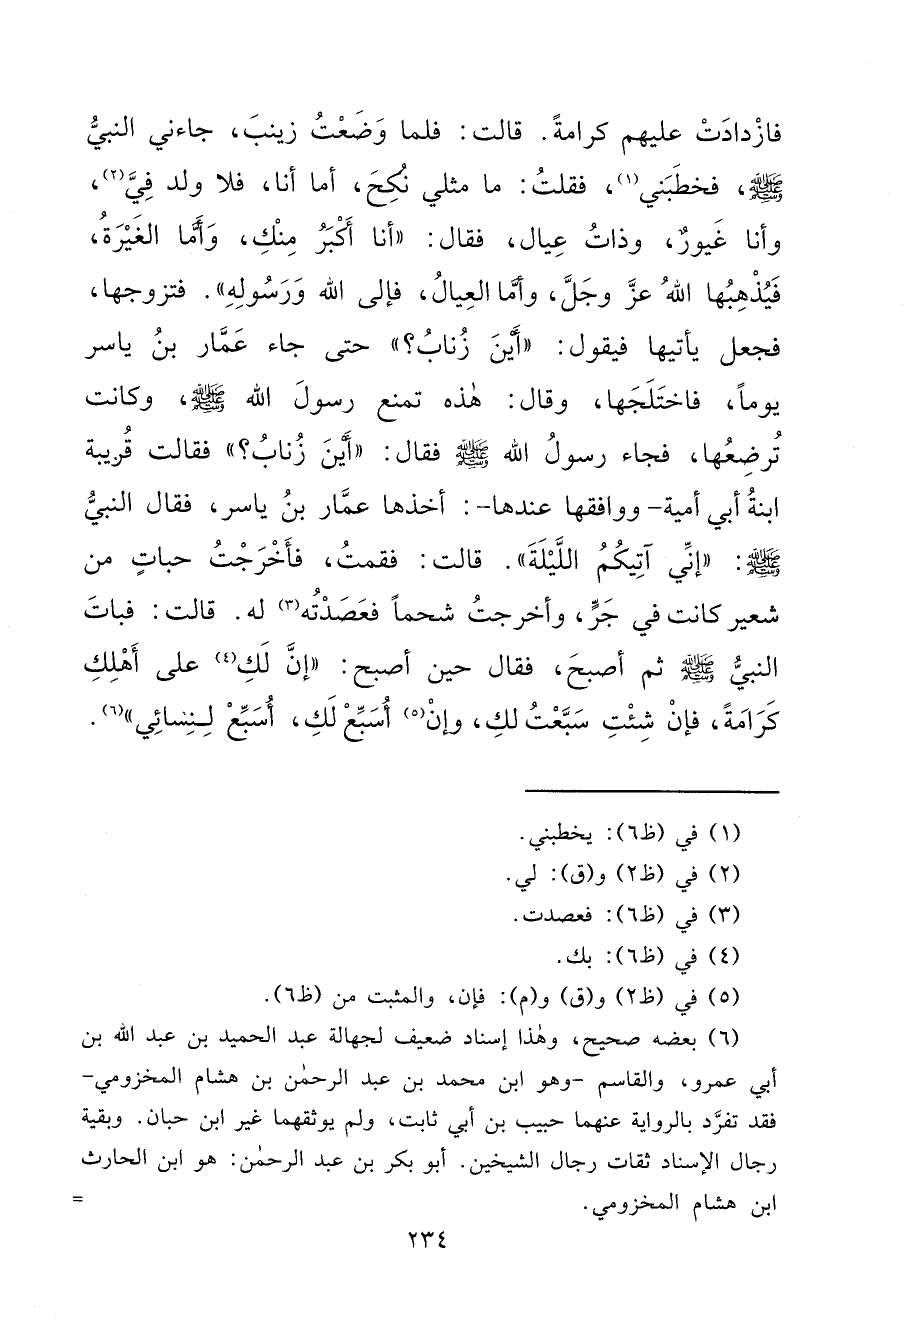 فازْدادَتْ عليهم كرامةً. قالت: فلما وَضَعْتُ زينبَ، جاءني النبيُّ
ﷺ، فخطَبَني(١)، فقلتُ: ما مثلي نُكِحَ، أما أنا، فلا ولد فِيَّ(٢)،
وأنا غَيورٌ، وذاتُ عِيال، فقال: «أنا أَكْبَرُ مِنْكِ، وَأَمَّا الغَيْرَةُ،
فَيُذْهِبُها اللهُ عزَّ وجَلَّ، وأمَّا العِيالُ، فإلى الله وَرَسُولِهِ». فتزوجها،
فجعل يأتيها فيقول: «أَيْنَ زُنابُ؟» حتى جاء عَمَّار بنُ ياسر
يوماً، فاختَلَجَها، وقال: هٰذه تمنع رسولَ الله ﷺ، وكانت
تُرضِعُها، فجاء رسولُ الله ﷺ فقال: «أَيْنَ زُنابُ؟» فقالت قُريبة
ابنةُ أبي أمية- ووافقها عندها-: أخذها عمَّار بنُ ياسر، فقال النبيُّ
ﷺ: «إنِّي آتِيكُمُ اللَّيْلَةَ». قالت: فقمتُ، فأَخْرَجْتُ حباتٍ من
شعير كانت في جَرٍّ، وأخرجتُ شحماً فعَصَدْتُه(٣) له. قالت: فباتَ
النبيُّ ﷺ ثم أصبحَ، فقال حين أصبح: «إنَّ لَكِ(٤) على أَهْلِكِ
كَرَامَةً، فإنْ شِئْتِ سَبَّعْتُ لكِ، وإنْ(٥) أُسَبِّعْ لَكِ، أُسَبِّعْ لِنِسائِي»(٦).
(١) في (ظ٦): يخطبني.
(٢) في (ظ٢) و(ق): لي.
(٣) في (ظ٦): فعصدت.
(٤) في (ظ٦): بك.
(٥) في (ظ٢) و(ق) و(م): فإن، والمثبت من (ظ٦).
(٦) بعضه صحيح، وهٰذا إسناد ضعيف لجهالة عبد الحميد بن عبد الله بن
أبي عمرو، والقاسم -وهو ابن محمد بن عبد الرحمٰن بن هشام المخزومي-
فقد تفرَّد بالرواية عنهما حبيب بن أبي ثابت، ولم يوثقهما غير ابن حبان. وبقية
رجال الإسناد ثقات رجال الشيخين. أبو بكر بن عبد الرحمٰن: هو ابن الحارث
ابن هشام المخزومي. =
٢٣٤